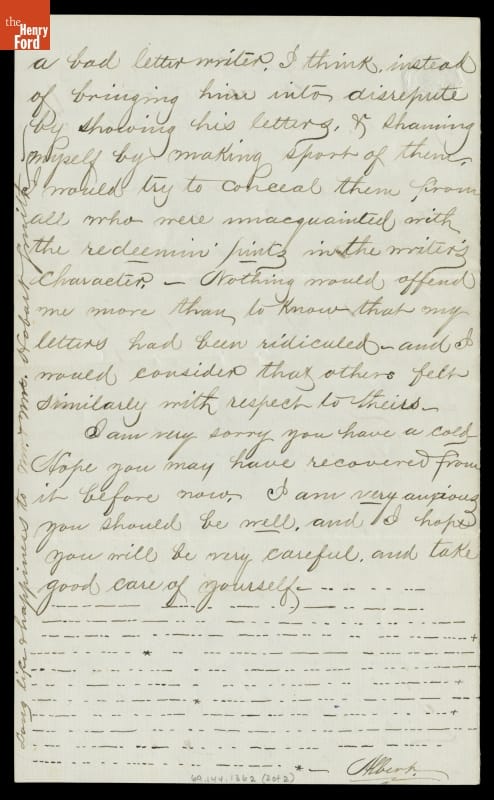 the
Henry
Ford
a bad letter writer, I think, instead
of bringing him into disrepute
by showing his letters, & shaming
myself by making sport of them,
I would try to conceal them from
all who were unacquainted with
the redeemin' pints in the writer's
character. — Nothing would offend
me more than to know that my
letters had been ridiculed — and I
would consider that others felt
similarly with respect to theirs —
I am very sorry you have a cold
Hope you may have recovered from
it before now. I am very anxious
you should be well, and I hope
you will be very careful, and take
good care of yourself —
Albert.
Long life & happiness to Mr. & Mrs. Hobart Smith
69.144.1362 (2 of 2)